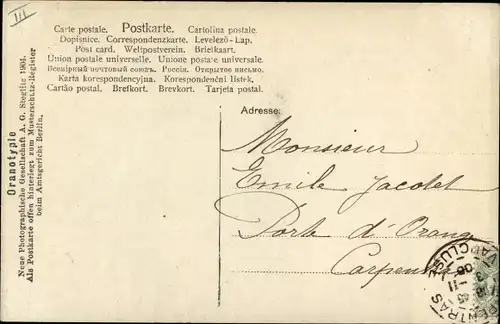 III
Carte postale. Postkarte. Cartolina postale.
Dopisnice. Correspondenzkarte. Levelező-Lap.
Post card. Weltpostverein. Briefkaart.
Union postale universelle. Unione postale universale.
Всемірный почтовый союзъ. Россія. Открытое письмо.
Karta korespondencyjna. Korespondenční lístek.
Cartão postal. Brefkort. Brevkort. Tarjeta postal.
Adresse:
Monsieur
Emile Jacotet
Porte d'Orange
Carpentras
Oranotypie
Neue Photographische Gesellschaft A. G. Steglitz 1904.
Als Postkarte offen hinterlegt zum Musterschutz-Register
beim Amtsgericht Berlin.
VAUCLUSE